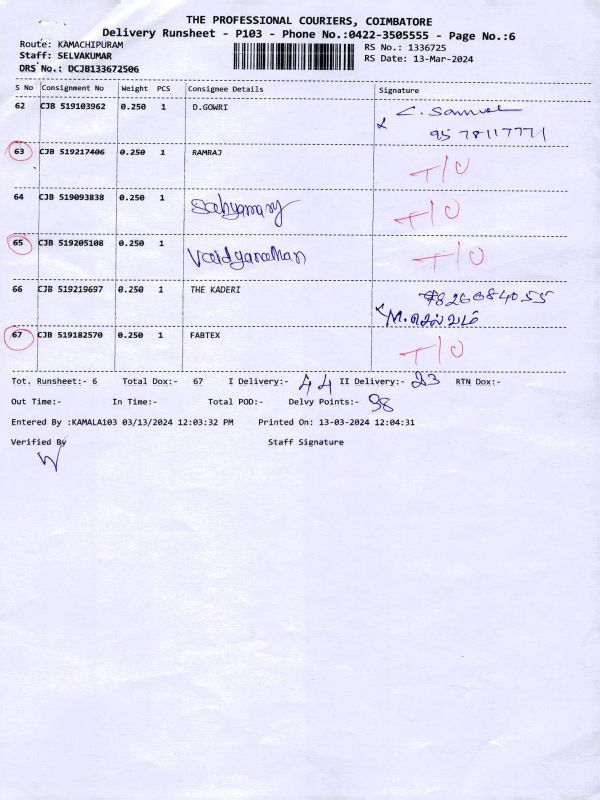 THE PROFESSIONAL COURIERS, COIMBATORE
Delivery Runsheet - P103 - Phone No.:0422-3505555 - Page No.:6
Route: KAMACHIPURAM
Staff: SELVAKUMAR
DRS No.: DCJB133672506
RS No.: 1336725
RS Date: 13-Mar-2024
S No Consignment No Weight PCS Consignee Details Signature
62 CJB 519103962 0.250 1 D.GOWRI C. Samuel
9578117771
63 CJB 519217406 0.250 1 RAMRAJ T/O
64 CJB 519093838 0.250 1 T/O
65 CJB 519205108 0.250 1 Vaidyanathan T/O
66 CJB 519219697 0.250 1 THE KADERI
M. செல்வம்
67 CJB 519182570 0.250 1 FABTEX T/O
Tot. Runsheet:- 6 Total Dox:- 67 I Delivery:- 44 II Delivery:- 23 RTN Dox:-
Out Time:- In Time:- Total POD:- Delvy Points:- 98
Entered By :KAMALA103 03/13/2024 12:03:32 PM Printed On: 13-03-2024 12:04:31
Verified By Staff Signature